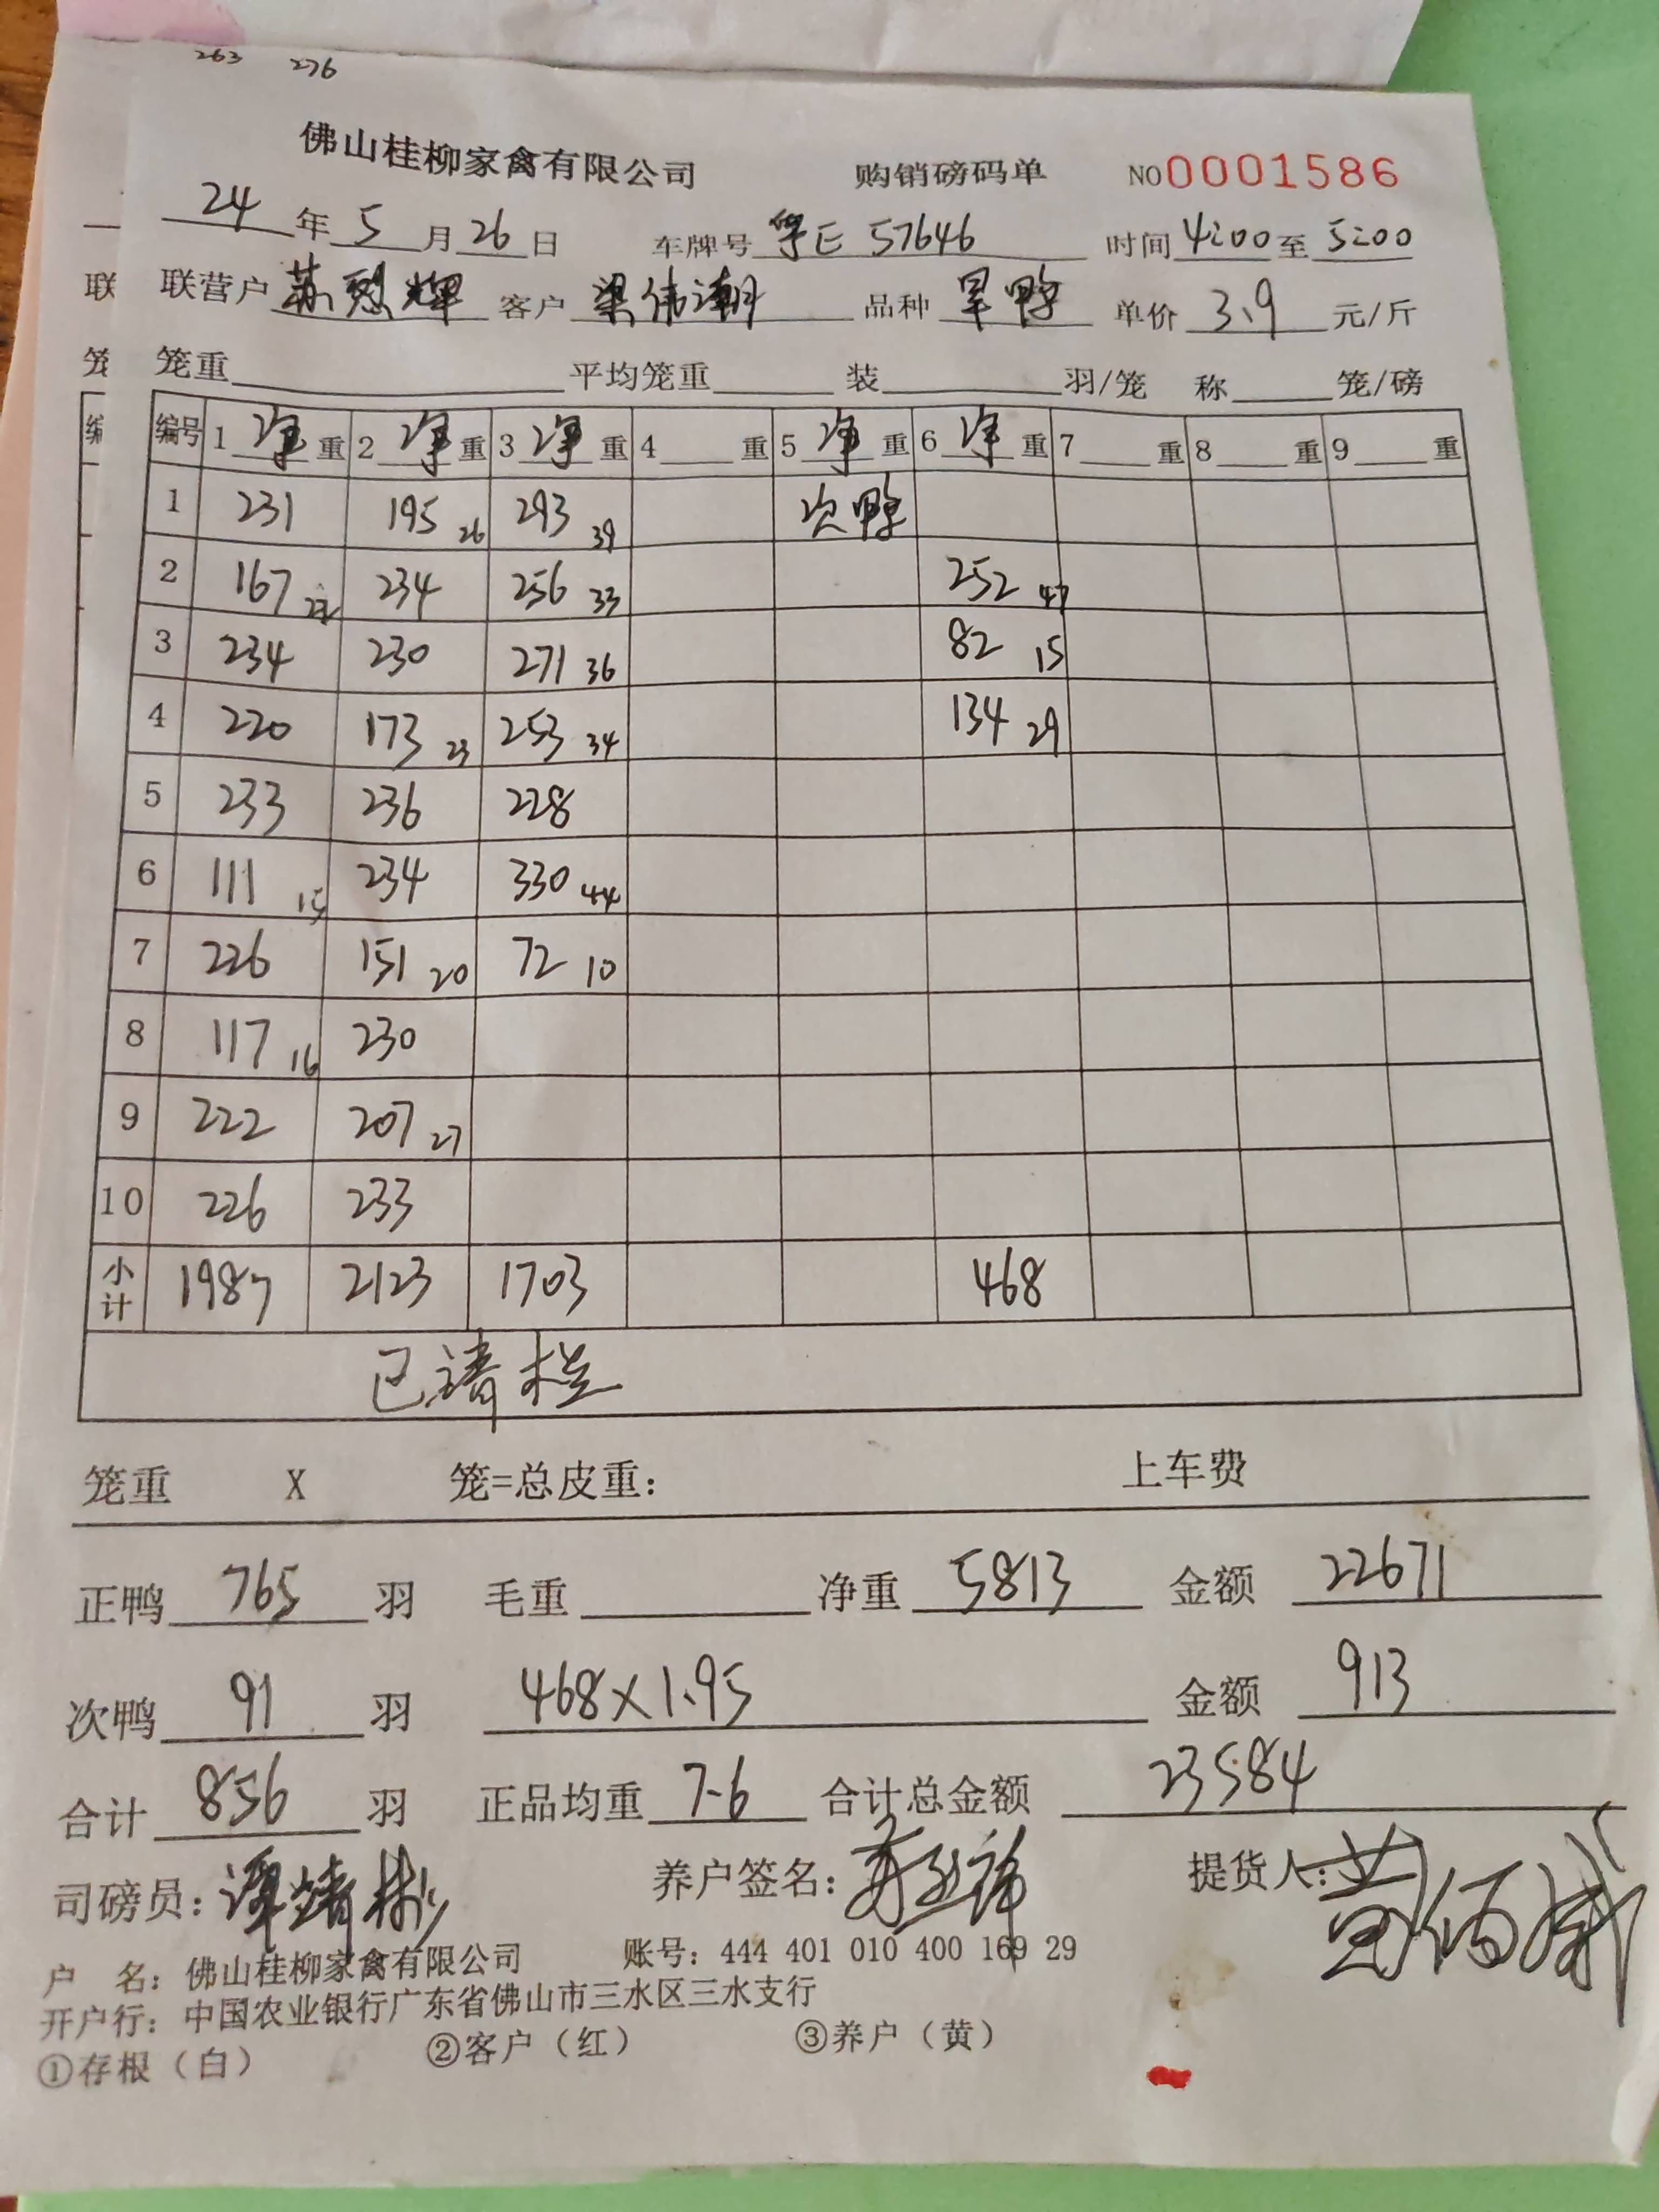 263 276
佛山桂柳家禽有限公司 购销磅码单 NO0001586
24年5月26日 车牌号 粤E 57646 时间 4:00至5:00
联营户 苏烈辉 客户 梁伟潮 品种 旱鸭 单价 3.9 元/斤
笼重 平均笼重 装 羽/笼 称 笼/磅
编号 1 净重 2 净重 3 净重 4 重 5 净重 6 净重 7 重 8 重 9 重
1 231 195 26 293 39 次鸭
2 167 22 234 256 33 252 47
3 234 230 271 36 82 15
4 220 173 23 253 34 134 29
5 233 236 228
6 111 15 234 330 44
7 226 151 20 72 10
8 117 16 230
9 222 207 27
10 226 233
小计 1987 2123 1703 468
已请栏
笼重 X 笼=总皮重: 上车费
正鸭 765 羽 毛重 净重 5813 金额 22671
次鸭 91 羽 468×1.95 金额 913
合计 856 羽 正品均重 7.6 合计总金额 23584
司磅员: 谭靖彬 养户签名: 提货人: 黄佰威
户 名: 佛山桂柳家禽有限公司 账号: 444 401 010 400 169 29
开户行: 中国农业银行广东省佛山市三水区三水支行
①存根（白） ②客户（红） ③养户（黄）